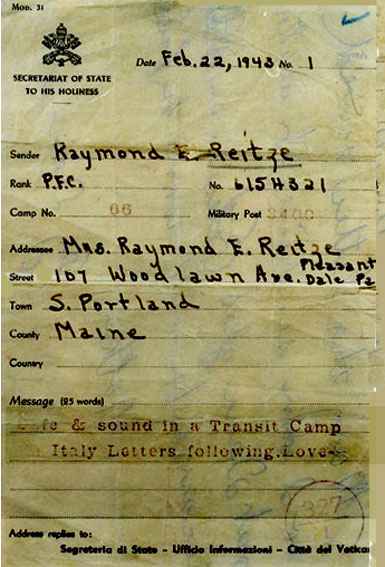 MOD. 31
SECRETARIAT OF STATE
TO HIS HOLINESS
Date Feb. 22, 1943 No. 1
Sender Raymond E. Reitze
Rank P.F.C. No. 6154321
Camp No. 66 Military Post 3400
Addressee Mrs. Raymond E. Reitze
Street 107 Woodlawn Ave. Pleasant Dale Pa
Town S. Portland
County Maine
Country
Message (25 words)
& sound in a Transit Camp
Italy Letters following. Love-
Address replies to:
Segreteria di Stato - Ufficio Informazioni - Città del Vatica